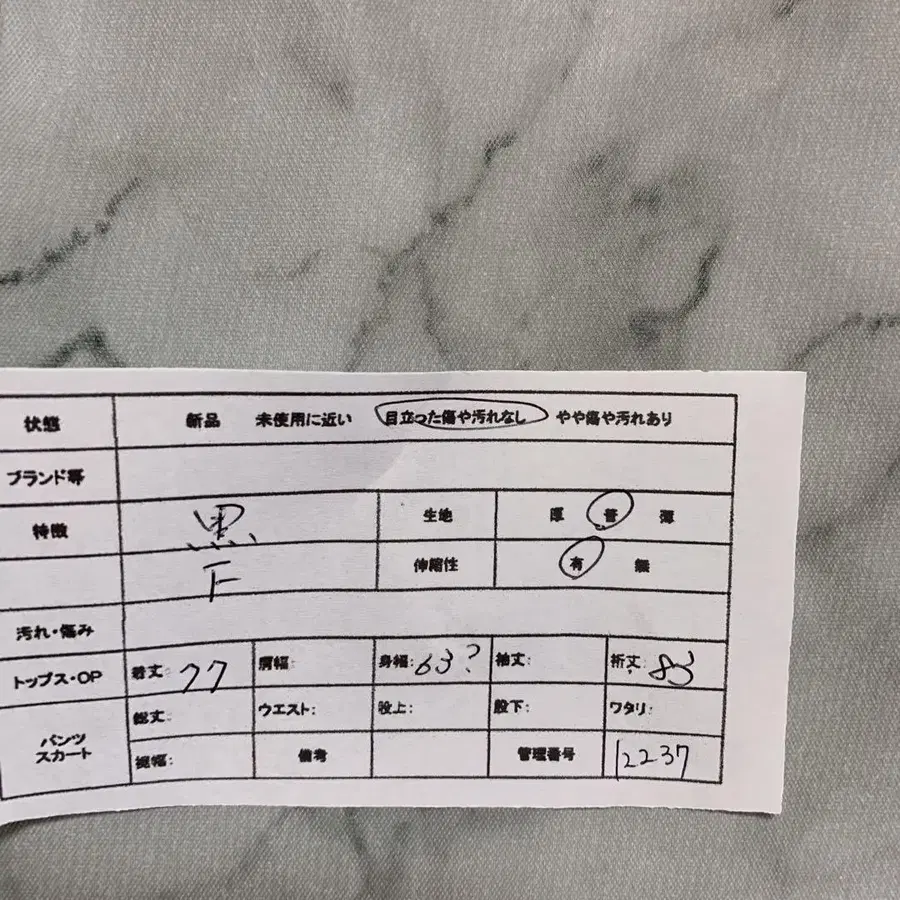 状態 新品 未使用に近い 目立った傷や汚れなし やや傷や汚れあり
ブランド等
特徴 黒 生地 厚 普 薄
F 伸縮性 有 無
汚れ・傷み
トップス・OP 着丈: 77 肩幅: 身幅: 63? 袖丈: 裄丈: 83
パンツ スカート 総丈: ウエスト: 股上: 股下: ワタリ:
裾幅: 備考 管理番号 12237